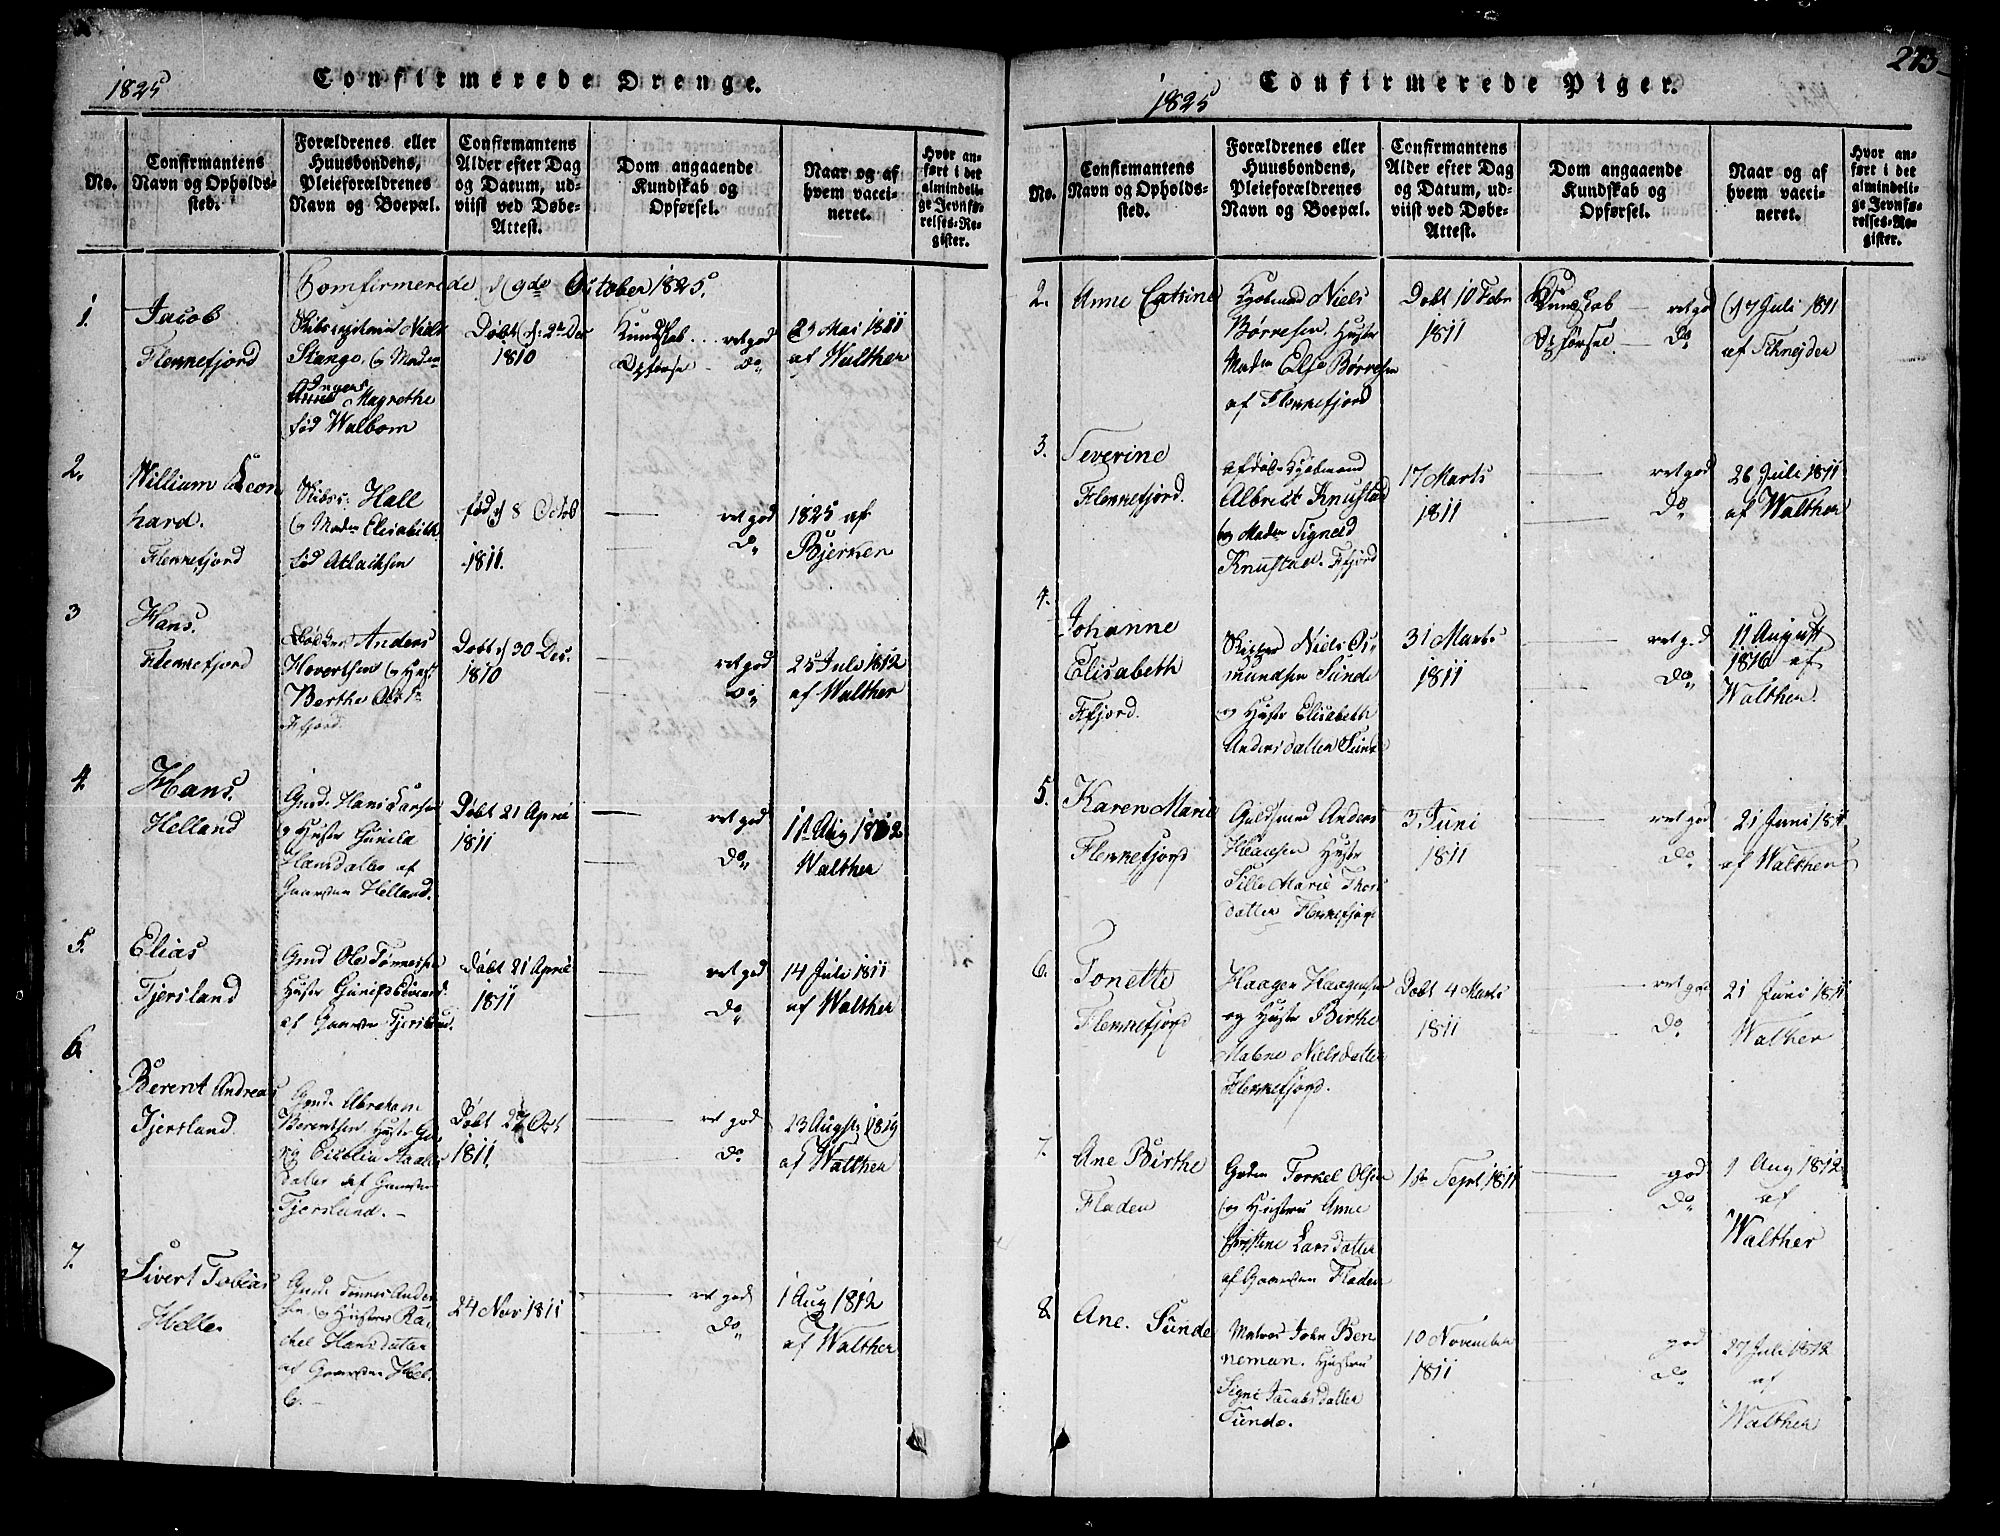 1825
Confirmerede Drenge.
No.
Confirmantens
Navn og Opholds-
sted.
Forældrenes eller
Huusbondens,
Pleieforældrenes
Navn og Boepæl.
Confirmantens
Alder efter Dag
og Datum, ud-
viist ved Døbe-
Attest.
Dom angaaende
Kundskab og
Opførsel.
Naar og af
hvem vacci-
neret.
Hvor an-
ført i det
almindeli-
ge Jevnfø-
relses-Re-
gister.
Comfirmerede 9de October 1825.
1.
Jacob
Flekkefjord
Niels
Stange, og Madm
Ingers
Magrethe
fød Walbom
Døbt 2n Dec
1810
Kundskab . . . ret god
Opførsel - do
23 Mai 1811
af Walther
2.
William Leon
hard.
Flekkefjord
Hall
og Madm Elisabeth
fød
fød 8 Octob
1811.
ret god
Do
1825 af
Bjerken
3
Hans.
Flekkefjord
Anders
og Hust
Berthe
Ffjord
Døbt 30 Dec.
1810
ret god
Do
25 Juli 1812
af Walther
4.
Hans.
Helland
Gmd. Hans Larsen
og Hustr Gunild
Hansdatter af
Gaarden Helland.
Døbt 21 April
1811
ret god
Do
11 Aug 1812
Walther
5.
Elias
Tjersland
Gmd Ole Tønnesen
Hustr
af Gaarden Tjersland.
Døbt 21 April
1811
ret god
Do
14 Juli 1811
af Walther
6
Berent Andreas
Tjersland
Gmd. Abraham
Berentsen Hustr
datter af Gaarden
Tjersland. -
Døbt 27 Oct
1811.
ret god
Do
23 Augst 1819
af Walther
7.
Sivert Tobias
Helle
Gmd. Tønnes Ander
sen, og Hustrue Ra-
chel Hansdatter
af Gaarden Hel-
le. -
24 Nov 1811
ret god
Do
1 Aug 1812
af Walther
273
1825
Confirmerede Piger.
No.
Confirmantens
Navn og Opholds-
sted.
Forældrenes eller
Huusbondens,
Pleieforældrenes
Navn og Boepæl.
Confirmantens
Alder efter Dag
og Datum, ud-
viist ved Døbe-
Attest.
Dom angaaende
Kundskab og
Opførsel.
Naar og af
hvem vacci-
neret.
Hvor an-
ført i det
almindeli-
ge Jevnfø-
relses-Re-
gister.
2.
Anne Catrine
Kjøbmd Niels
Børresen. Hustr
Madm Else Børresen
af Flekkefjord
Døbt 10 Febr
1811
Kundskab - ret god
Opførsel - Do
17 Juli 1811
af Schnejder
3.
Severine
Flekkefjord.
afdøde Kjøbmand
Albrett Knustad
og Madm Signeld
Knustad. Ffjord
17 Marts
1811
ret god
Do
26 Juli 1811
af Walther
4.
Johanne
Elisabeth
Ffjord.
Niels Os-
mundsen Sunde
og Hustr Elisabeth
Andersdatter Sunde
31 Marts
1811
ret god
Do
11 August
1816 af
Walther.
5.
Karen Marie
Flekkefjord
Guldsmed Anders
Hustr
Sille Marie Thors
datter Flekkefjord
3 Juni
1811
ret god
Do
21 Juni 1811
af Walther
6.
Tonette
Flekkefjord
Haagen Haagensen
og Hustr Birthe
Malene Nielsdatter
Flekkefjord.
Døbt 4 Marts
1811
ret god
Do
21 Juni 1811
Walther
7.
Ane Birthe
Fladen
Torkel Olsen
og Hustru Anne
Christine Larsdatter
af Gaarden Fladen
1ste Sept 1811
god
Do
1 Aug 1812
af
Walther
8
Ane. Sunde
Matros John Ben
neman. Hustru
Signe Jacobsdatter
Sunde.
10 November
1811
god
do
27 Juli 1812
af
Walther